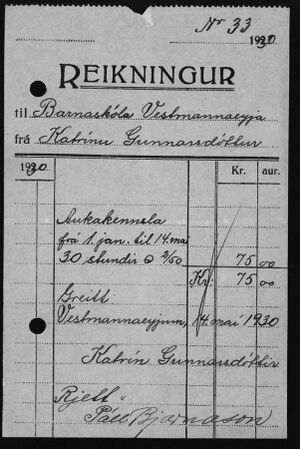 Nr 33
1930
REIKNINGUR
til Barnaskóla Vestmannaeyja
frá Katrínu Gunnarsdóttur
1930. Kr. aur.
Aukakennsla
frá 1. jan. til 14. maí
30 stundir @ 2/50 75 00
Kr: 75 00
Greitt:
Vestmannaeyjum, 14. maí 1930
Katrín Gunnarsdóttir
Rjett:
Páll Bjarnason